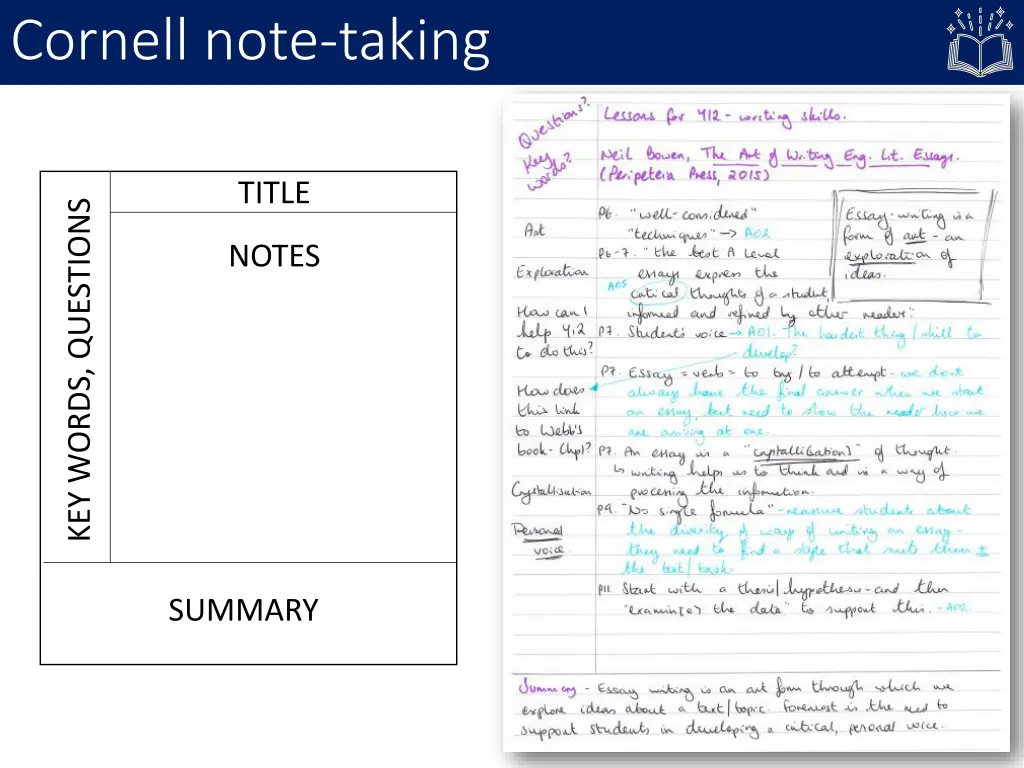 Cornell note-taking
KEY WORDS, QUESTIONS
TITLE
NOTES
SUMMARY
Questions?
Key words?
Lessons for Y12 - writing skills.
Neil Bowen, The Art of Writing Eng. Lit. Essays.
(Peripeteia Press, 2015)
Art
Exploration
How can I
help Y12
to do this?
How does
this link
to Webb's
book - (hp1)?
Crystallisation
Personal
voice.
P6. "well-considered"
"techniques" → AO2
P6-7. "the best A level
essays express the
AO5 critical thoughts of a student,
informed and refined by other readers".
P7. Student's voice → AO1. The hardest thing/skill to
develop?
P7. Essay = verb = to try / to attempt - we don't
always have the final answer when we start
an essay, but need to show the reader how we
are arriving at one.
P7. An essay is a "crystallisation" of thought.
↳ writing helps us to think and is a way of
processing the information.
P9. "No single formula" - reassure students about
the diversity of ways of writing an essay -
they need to find a style that suits them ±
the text/task.
P11. Start with a thesis/hypothesis - and then
"examin(e) the data" to support this. - AO2.
Essay-writing is a
form of art - an
exploration of
ideas.
Summary - Essay writing is an art form through which we
explore ideas about a text/topic. Foremost is the need to
support students in developing a critical, personal voice.